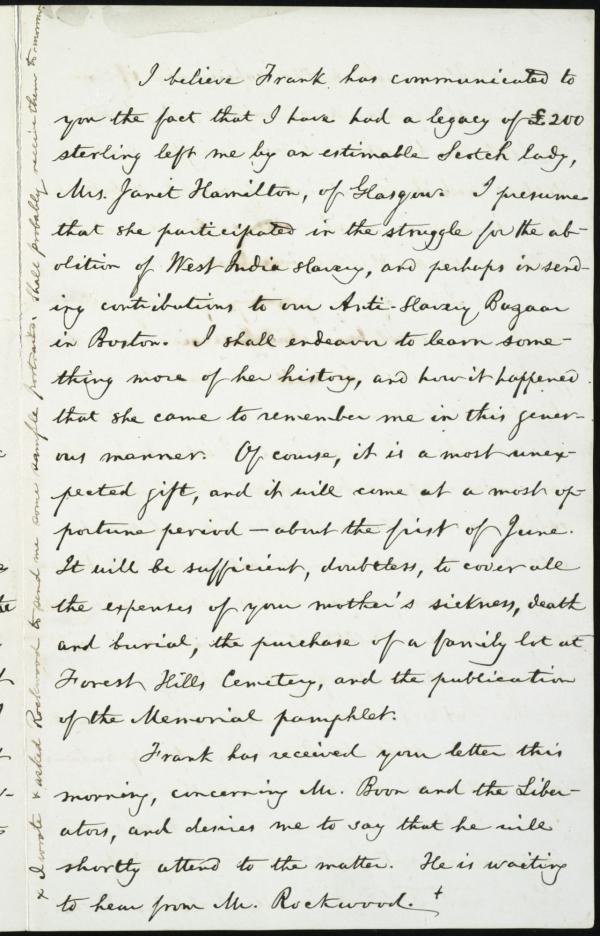 I believe Frank has communicated to
you the fact that I have had a legacy of £200
sterling left me by an estimable Scotch lady,
Mrs. Janet Hamilton, of Glasgow. I presume
that she participated in the struggle for the ab-
olition of West India slavery, and perhaps in send-
ing contributions to our Anti-Slavery Bazaar
in Boston. I shall endeavor to learn some-
thing more of her history, and how it happened
that she came to remember me in this gener-
ous manner. Of course, it is a most unex-
pected gift, and it will come at a most op-
portune period — about the first of June.
It will be sufficient, doubtless, to cover all
the expenses of your mother's sickness, death
and burial, the purchase of a family lot at
Forest Hills Cemetery, and the publication
of the Memorial pamphlet.
Frank has received your letter this
morning, concerning Mr. Boon and the Liber-
ators, and desires me to say that he will
shortly attend to the matter. He is waiting
to hear from Mr. Rockwood. +
+ I wrote & asked Rockwood to send me some sample portraits. Shall probably receive them to-morrow